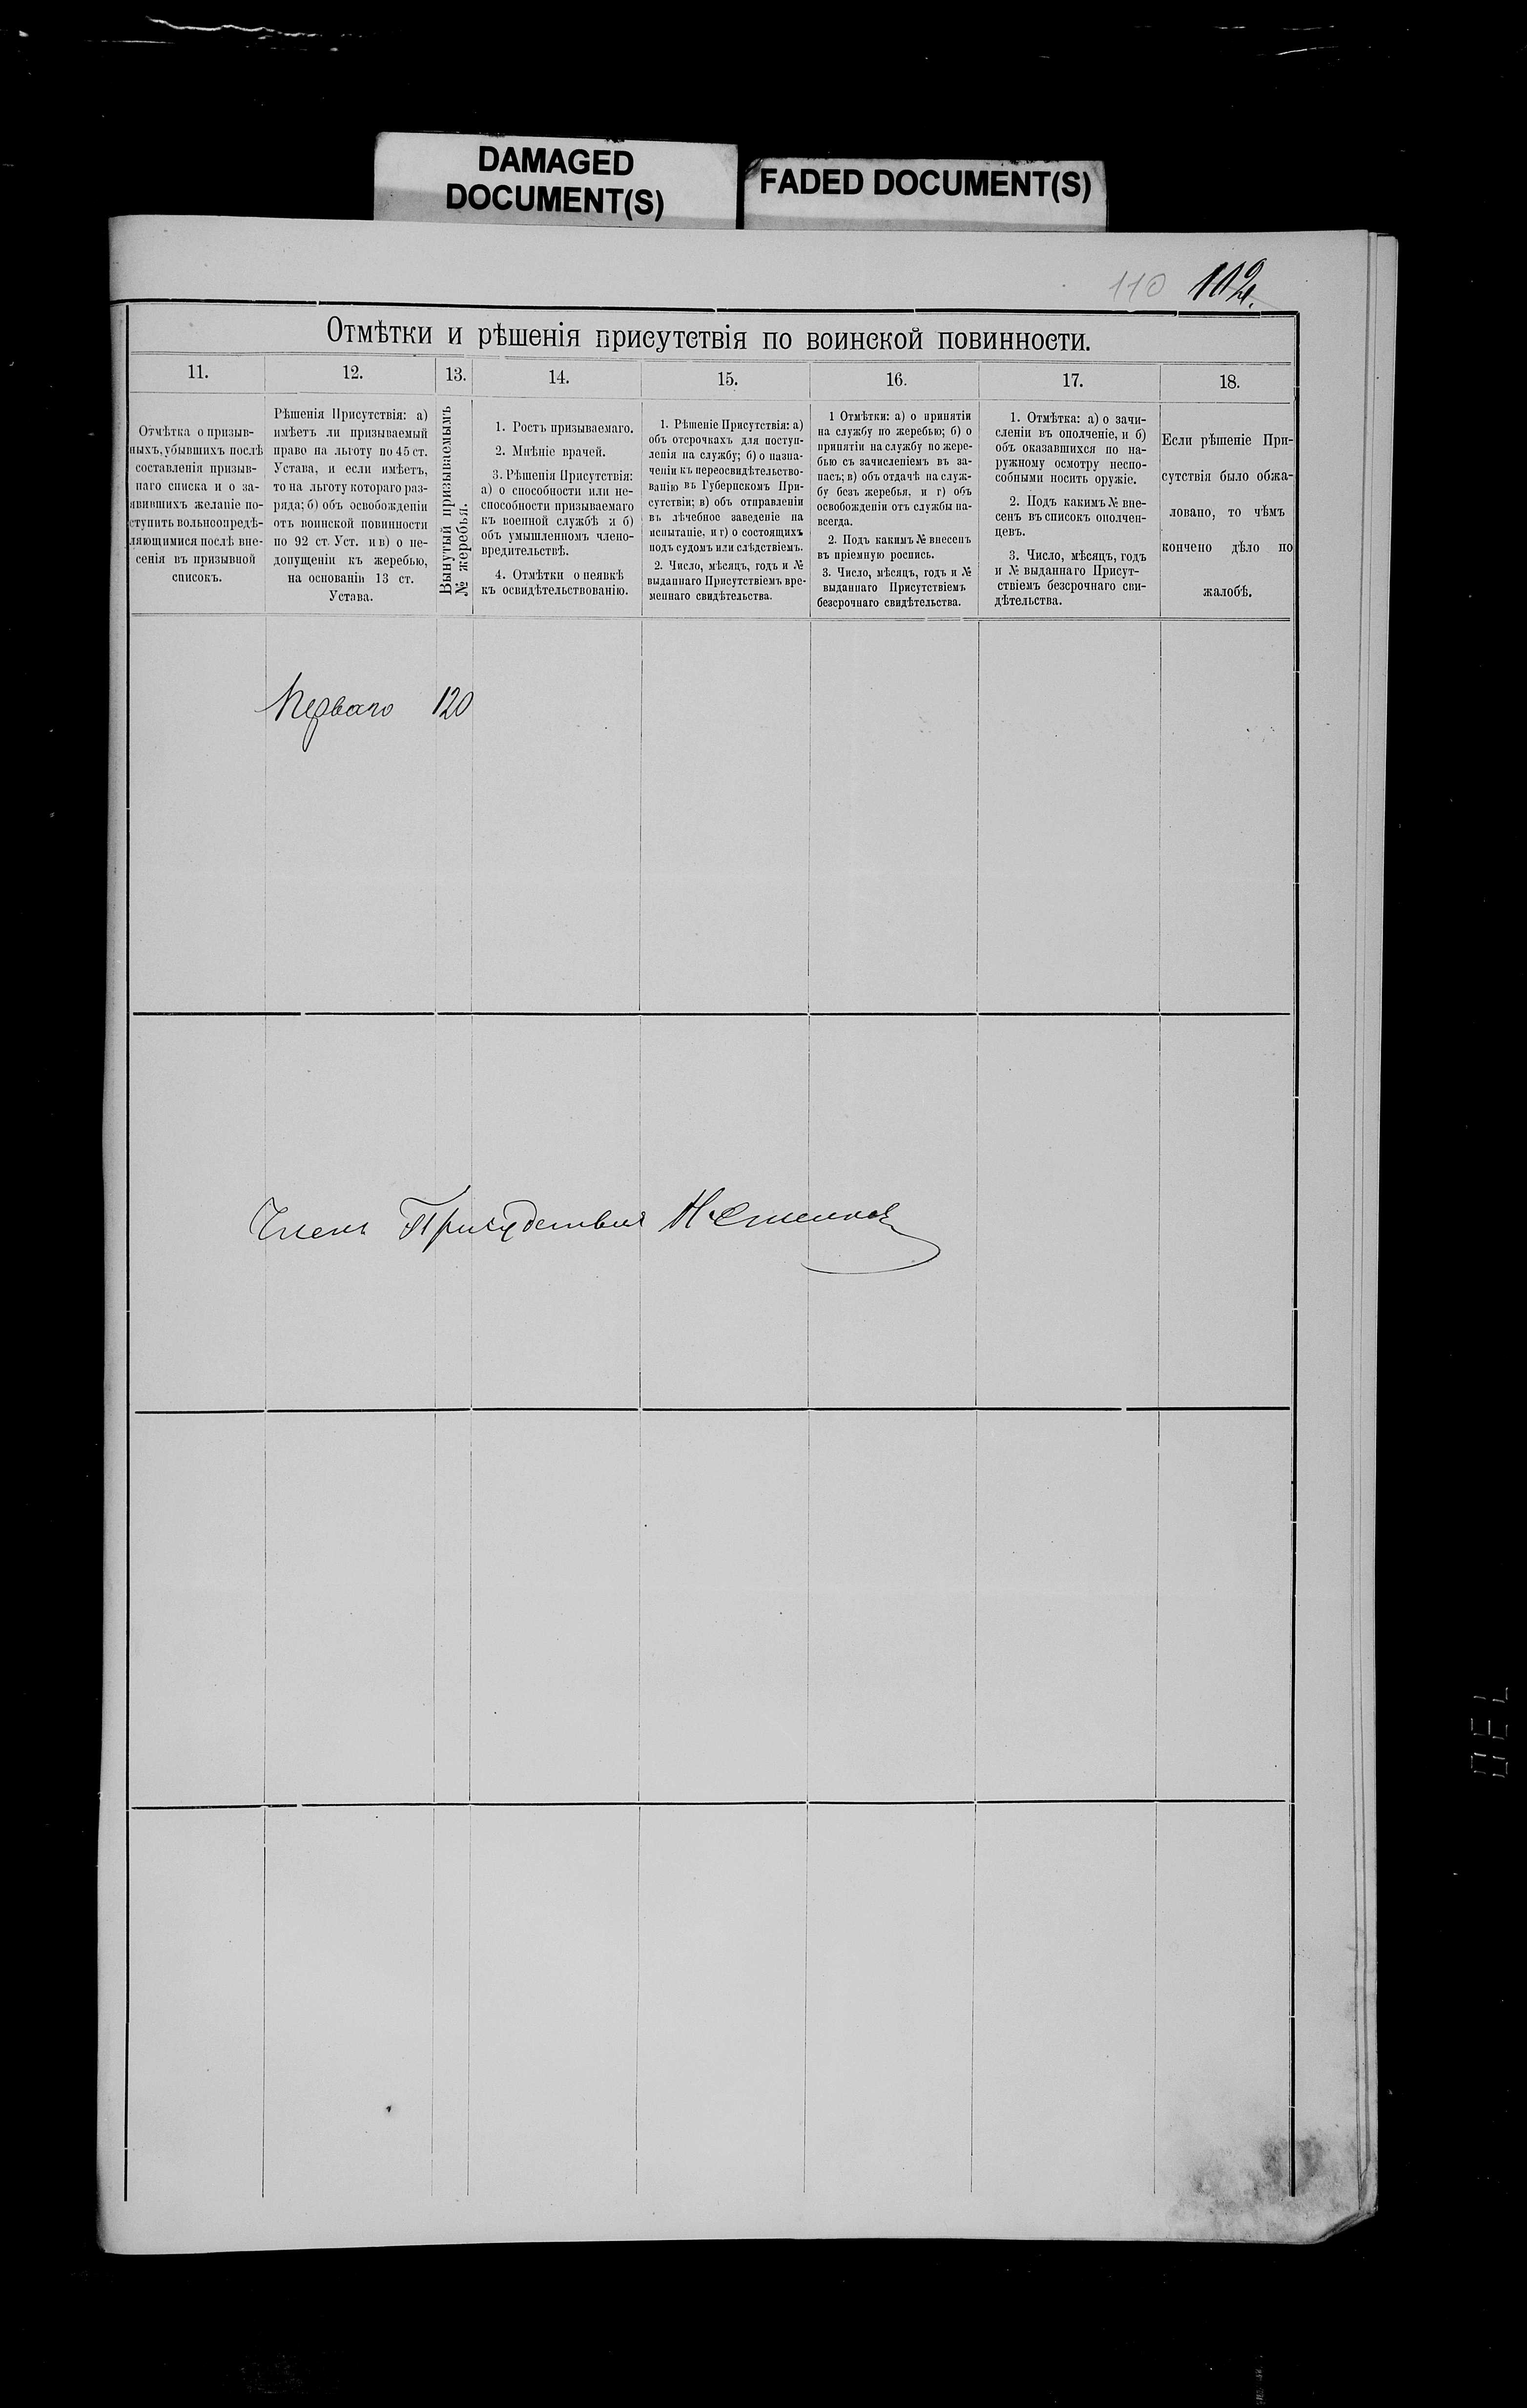 DAMAGED
DOCUMENT(S)
FADED DOCUMENT(S)
110 102.
Отмѣтки и рѣшенія присутствія по воинской повинности.
11. 12. 13. 14. 15. 16. 17. 18.
Отмѣтка о призыв-
ныхъ, убывшихъ послѣ
составленія призыв-
наго списка и о за-
явившихъ желаніе по-
ступить вольноопредѣ-
ляющимися послѣ вне-
сенія въ призывной
списокъ.
Рѣшенія Присутствія: а)
имѣетъ ли призываемый
право на льготу по 45 ст.
Устава, и если имѣетъ,
то на льготу котораго раз-
ряда; б) объ освобожденіи
отъ воинской повинности
по 92 ст. Уст. и в) о не-
допущеніи къ жеребью,
на основаніи 13 ст.
Устава.
Вынутый призываемымъ
№ жеребья.
1. Ростъ призываемаго.
2. Мнѣніе врачей.
3. Рѣшенія Присутствія:
а) о способности или не-
способности призываемаго
къ военной службѣ и б)
объ умышленномъ члено-
вредительствѣ.
4. Отмѣтки о неявкѣ
къ освидѣтельствованію.
1. Рѣшеніе Присутствія: а)
объ отсрочкахъ для поступ-
ленія на службу; б) о назна-
ченіи къ переосвидѣтельство-
ванію въ Губернскомъ При-
сутствіи; в) объ отправленіи
въ лѣчебное заведеніе на
испытаніе, и г) о состоящихъ
подъ судомъ или слѣдствіемъ.
2. Число, мѣсяцъ, годъ и №
выданнаго Присутствіемъ вре-
меннаго свидѣтельства.
1 Отмѣтки: а) о принятіи
на службу по жеребью; б) о
принятіи на службу по жере-
бью съ зачисленіемъ въ за-
пасъ; в) объ отдачѣ на служ-
бу безъ жеребья, и г) объ
освобожденіи отъ службы на-
всегда.
2. Подъ какимъ № внесенъ
въ пріемную роспись.
3. Число, мѣсяцъ, годъ и №
выданнаго Присутствіемъ
безсрочнаго свидѣтельства.
1. Отмѣтка: а) о зачи-
сленіи въ ополченіе, и б)
объ оказавшихся по на-
ружному осмотру неспо-
собными носить оружіе.
2. Подъ какимъ № вне-
сенъ въ списокъ ополчен-
цевъ.
3. Число, мѣсяцъ, годъ
и № выданнаго Присут-
ствіемъ безсрочнаго сви-
дѣтельства.
Если рѣшеніе При-
сутствія было обжа-
ловано, то чѣмъ
кончено дѣло по
жалобѣ.
Перваго 120
Членъ Присудствия